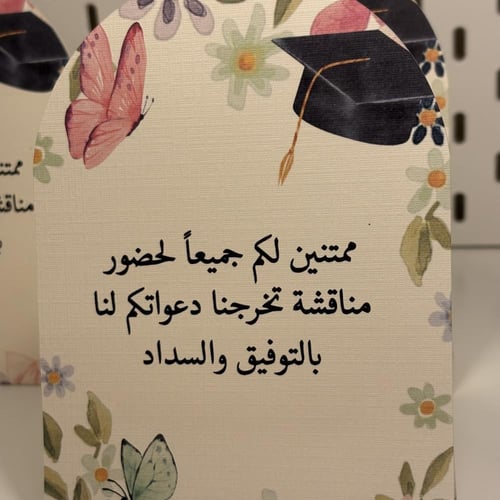 ممتنين لكم جميعاً لحضور
مناقشة تخرجنا دعواتكم لنا
بالتوفيق والسداد